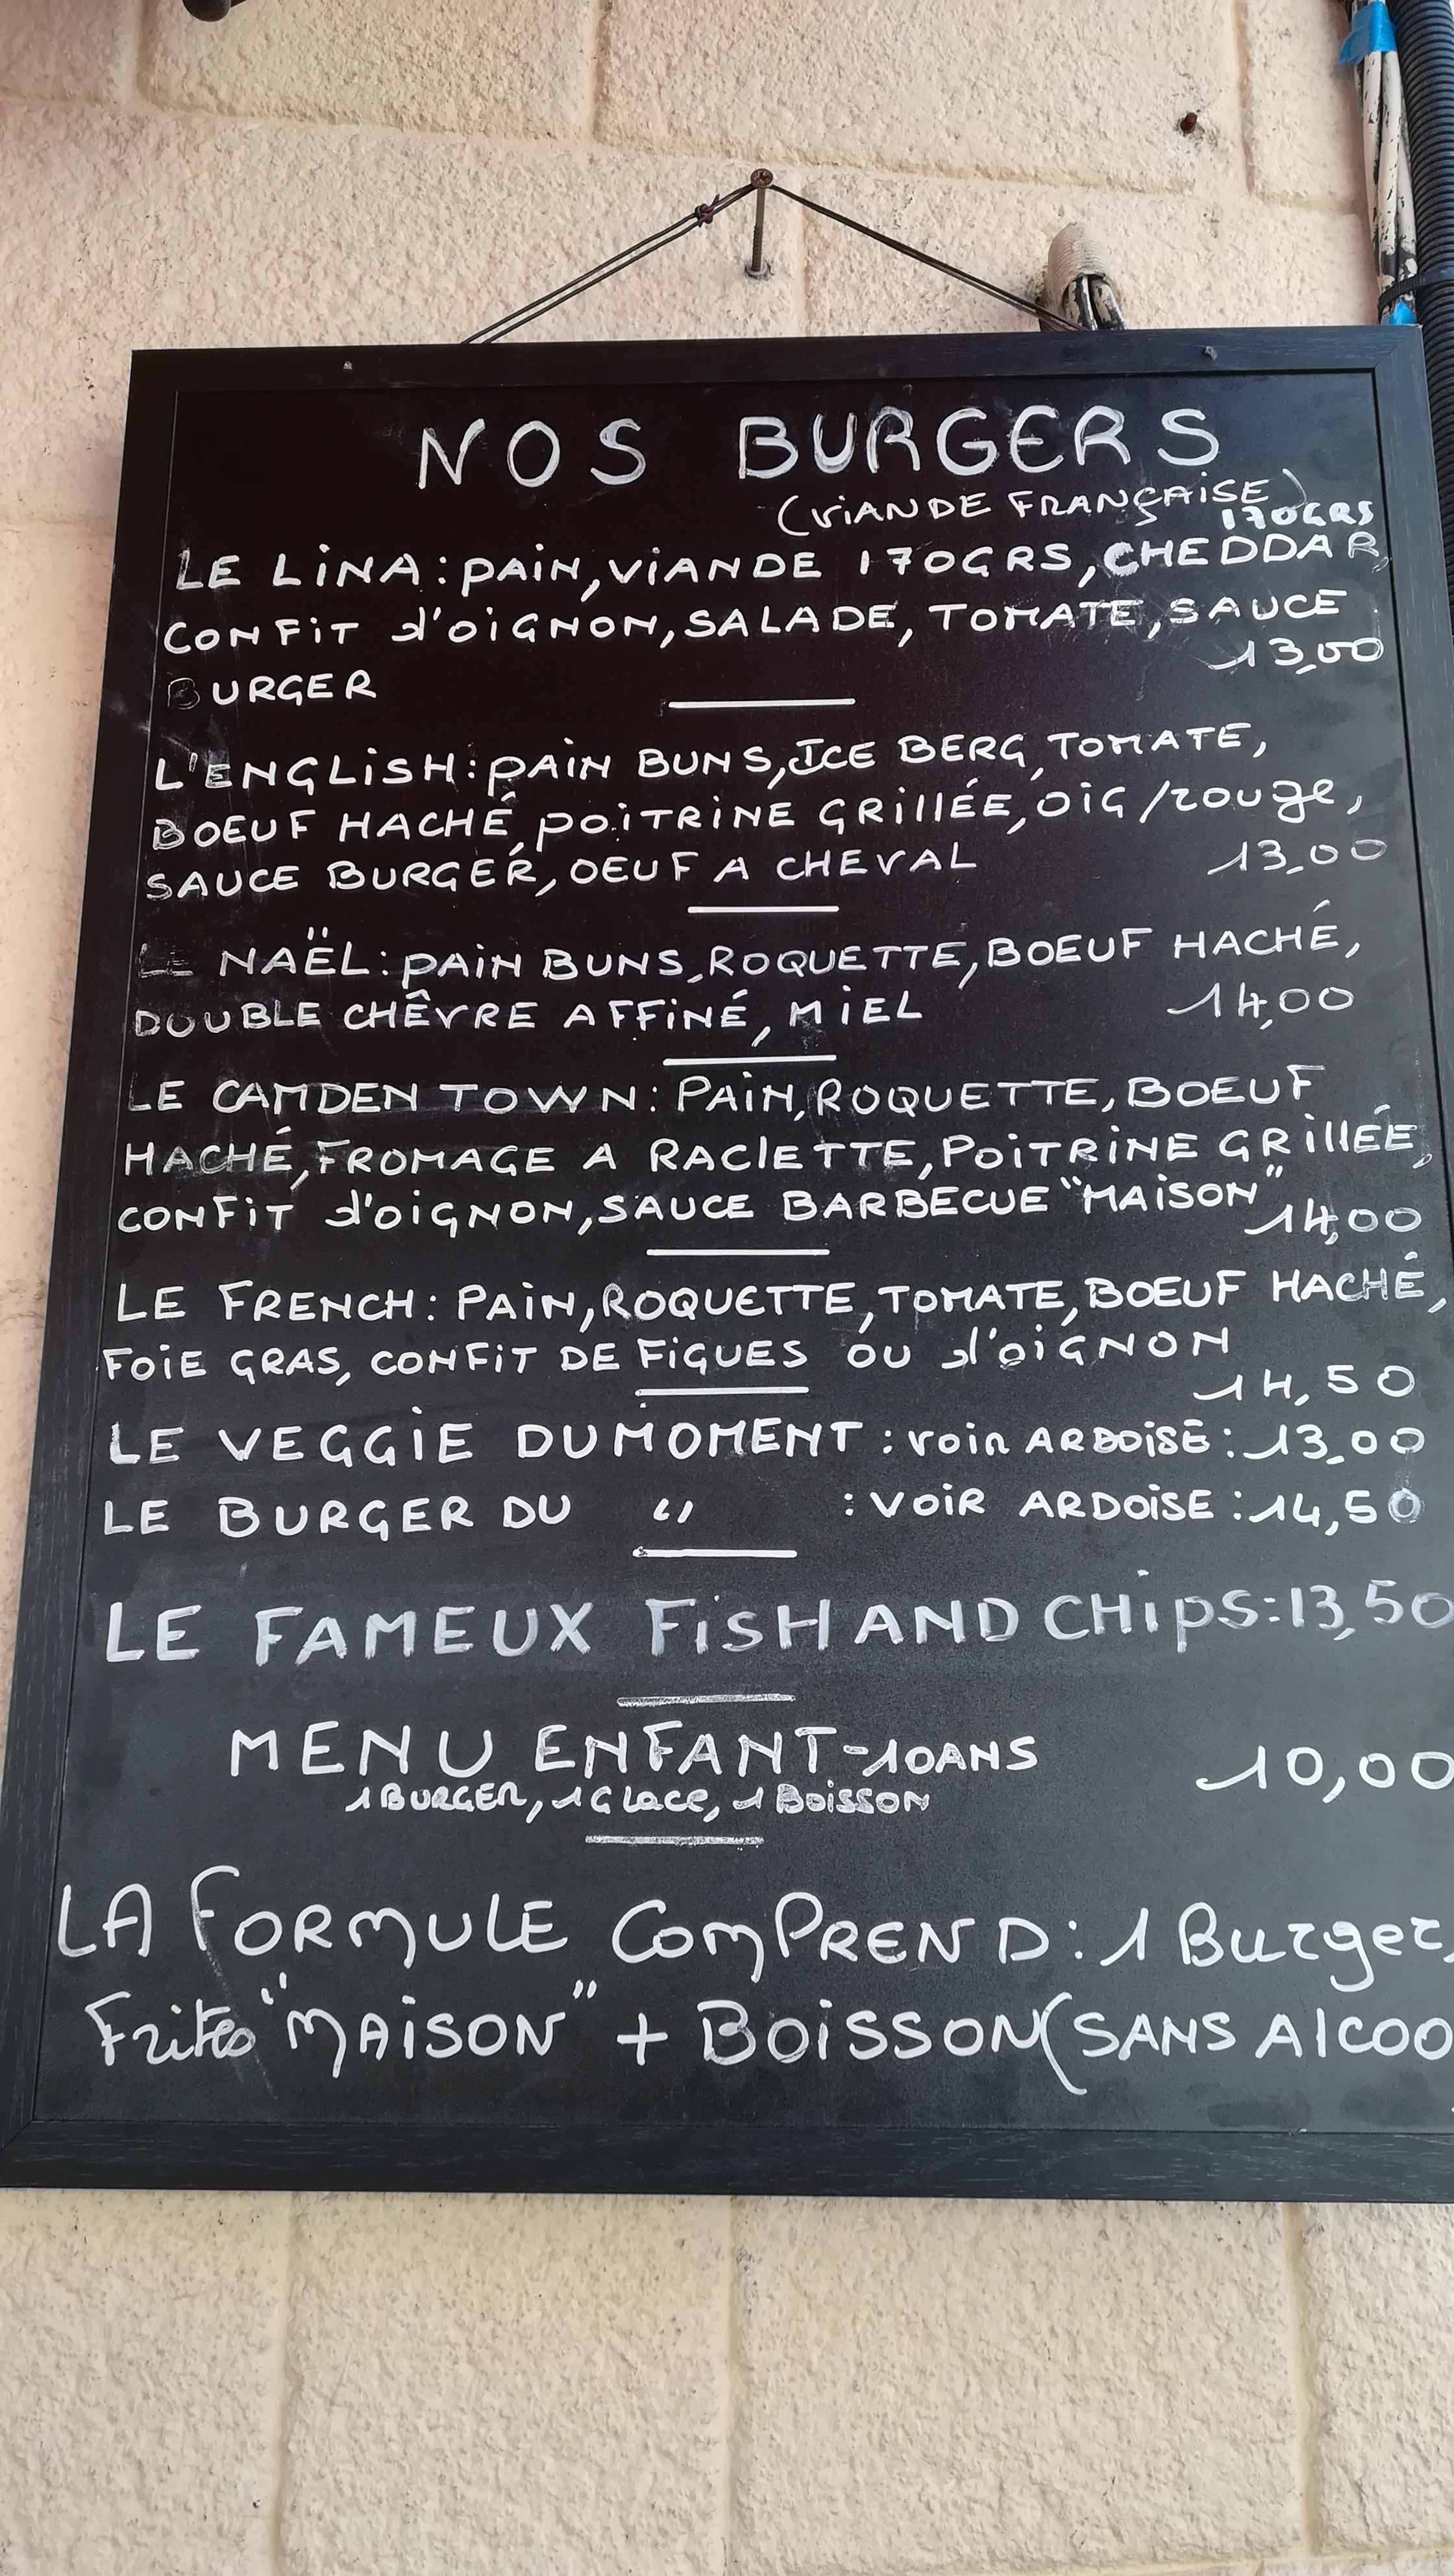 NOS BURGERS
(VIANDE FRANÇAISE)
170GRS
LE LINA: PAIN, VIANDE 170GRS, CHEDDAR,
CONFIT d'OIGNON, SALADE, TOMATE, SAUCE
BURGER 13,00
L'ENGLISH: PAIN BUNS, ICE BERG, TOMATE,
BOEUF HACHÉ, POITRINE GRILLÉE, OIG/rouge,
SAUCE BURGER, OEUF A CHEVAL 13,00
LE NAËL: PAIN BUNS, ROQUETTE, BOEUF HACHÉ,
DOUBLE CHÊVRE AFFINÉ, MIEL 14,00
LE CAMDEN TOWN: PAIN, ROQUETTE, BOEUF
HACHÉ, FROMAGE A RAClETTE, POITRINE GRillÉE,
CONFIT d'OIGNON, SAUCE BARBECUE "MAISON" 14,00
LE FRENCH: PAIN, ROQUETTE, TOMATE, BOEUF HACHÉ,
FOIE GRAS, CONFIT DE FIGUES OU d'OIGNON
14,50
LE VEGGIE DU MOMENT : voir ARDOISE: 13,00
LE BURGER DU " : VOIR ARDOISE: 14,50
LE FAMEUX FISH AND CHIPS: 13,50
MENU ENFANT -10ANS 10,00
1 BURGER, 1 Glace, 1 BOISSON
LA FORMULE COMPREND: 1 Burger,
Frites "MAISON" + BOISSON (SANS AlCOO